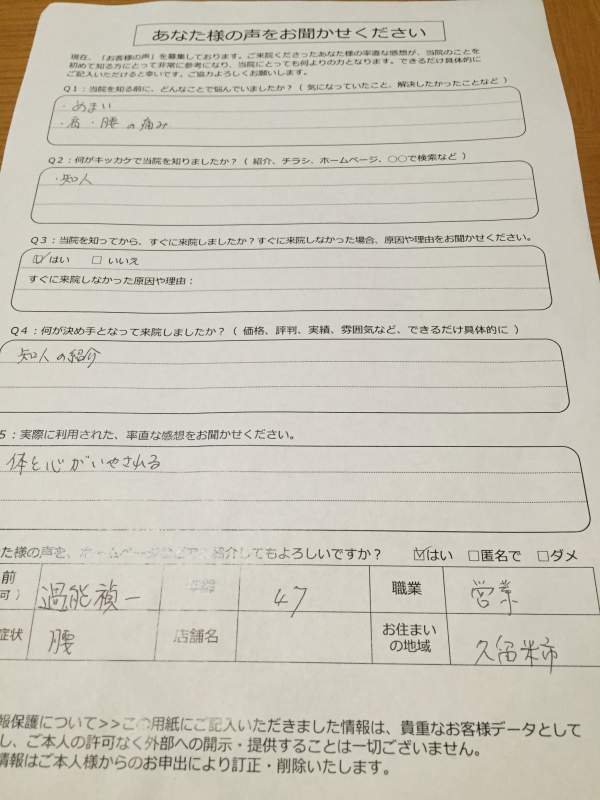 あなた様の声をお聞かせください
現在、「お客様の声」を募集しております。ご来院くださったあなた様の率直な感想が、当院のことを
初めて知る方にとって非常に参考になり、当院にとっても何よりの力となります。できるだけ具体的に
ご記入いただけると幸いです。ご協力よろしくお願いします。
Q1：当院を知る前に、どんなことで悩んでいましたか？（ 気になっていたこと、解決したかったことなど ）
・めまい
・肩・腰の痛み
Q2：何がキッカケで当院を知りましたか？（ 紹介、チラシ、ホームページ、○○で検索など ）
・知人
Q3：当院を知ってから、すぐに来院しましたか？すぐに来院しなかった場合、原因や理由をお聞かせください。
☑はい □いいえ
すぐに来院しなかった原因や理由：
Q4：何が決め手となって来院しましたか？（ 価格、評判、実績、雰囲気など、できるだけ具体的に ）
知人の紹介
5：実際に利用された、率直な感想をお聞かせください。
体と心がいやされる
た様の声を、ホームページなどでご紹介してもよろしいですか？ ☑はい □匿名で □ダメ
前 過能禎一 年齢 47 職業 営業
可）
症状 腰 店舗名 お住まい
の地域 久留米市
報保護について>>この用紙にご記入いただきました情報は、貴重なお客様データとして
し、ご本人の許可なく外部への開示・提供することは一切ございません。
情報はご本人様からのお申出により訂正・削除いたします。